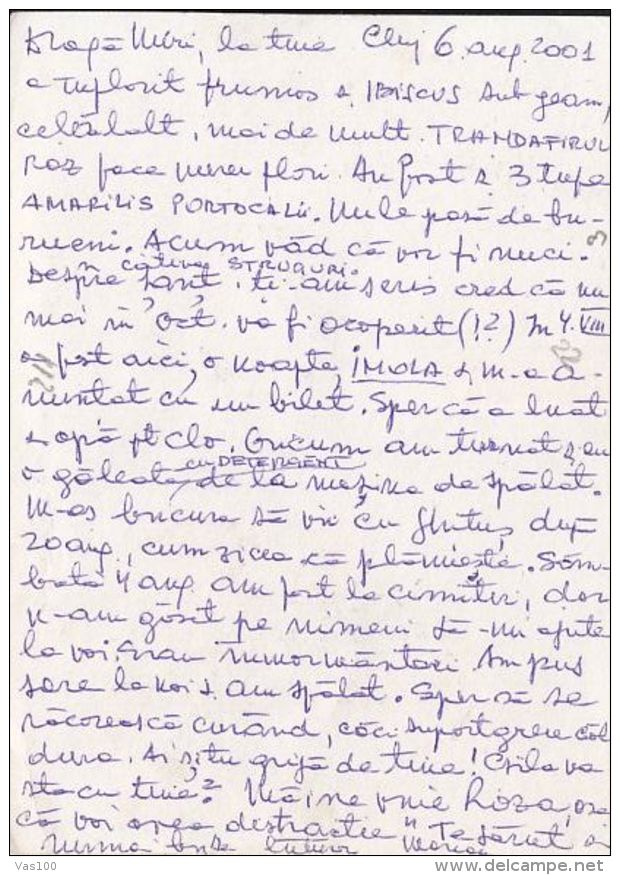 Dragă Miri, la tine Cluj 6.aug.2001
a înflorit frumos IBISCUS sub geam,
celălalt, mai de mult. TRANDAFIRUL
roz face mereu flori. Au fost și 3 tufe
AMARILIS PORTOCALII. Nu le pasă de bu-
rueni. Acum văd că vor fi nuci.
câțiva STRUGURI.
Despre șanț, ți-am scris cred că nu
mai în Oct. va fi acoperit (!?) În 4.VIII
a fost aici, o noapte, IMOLA și m-a a-
nunțat cu un bilet. Sper că a luat
și apă pt clo. Oricum am turnat și eu
cu DETERGENT
o găleată de la mașina de spălat.
M-aș bucura să vii cu după
20 aug., cum zicea că plănuiește. Sâm-
bătă 4 aug am fost la cimitir, dar
n-am găsit pe nimeni să-mi ajute
la voi. Erau înmormântări. Am pus
la noi și am spălat. Sper să se
răcorească curând, căci suport greu căl
dura. Ai și tu grijă de tine! Csilla va
sta cu tine? Mâine vine Roza, așa
că voi avea "distracție". Te sărut și
numai bune tuturor
Vas100 www.delcampe.net